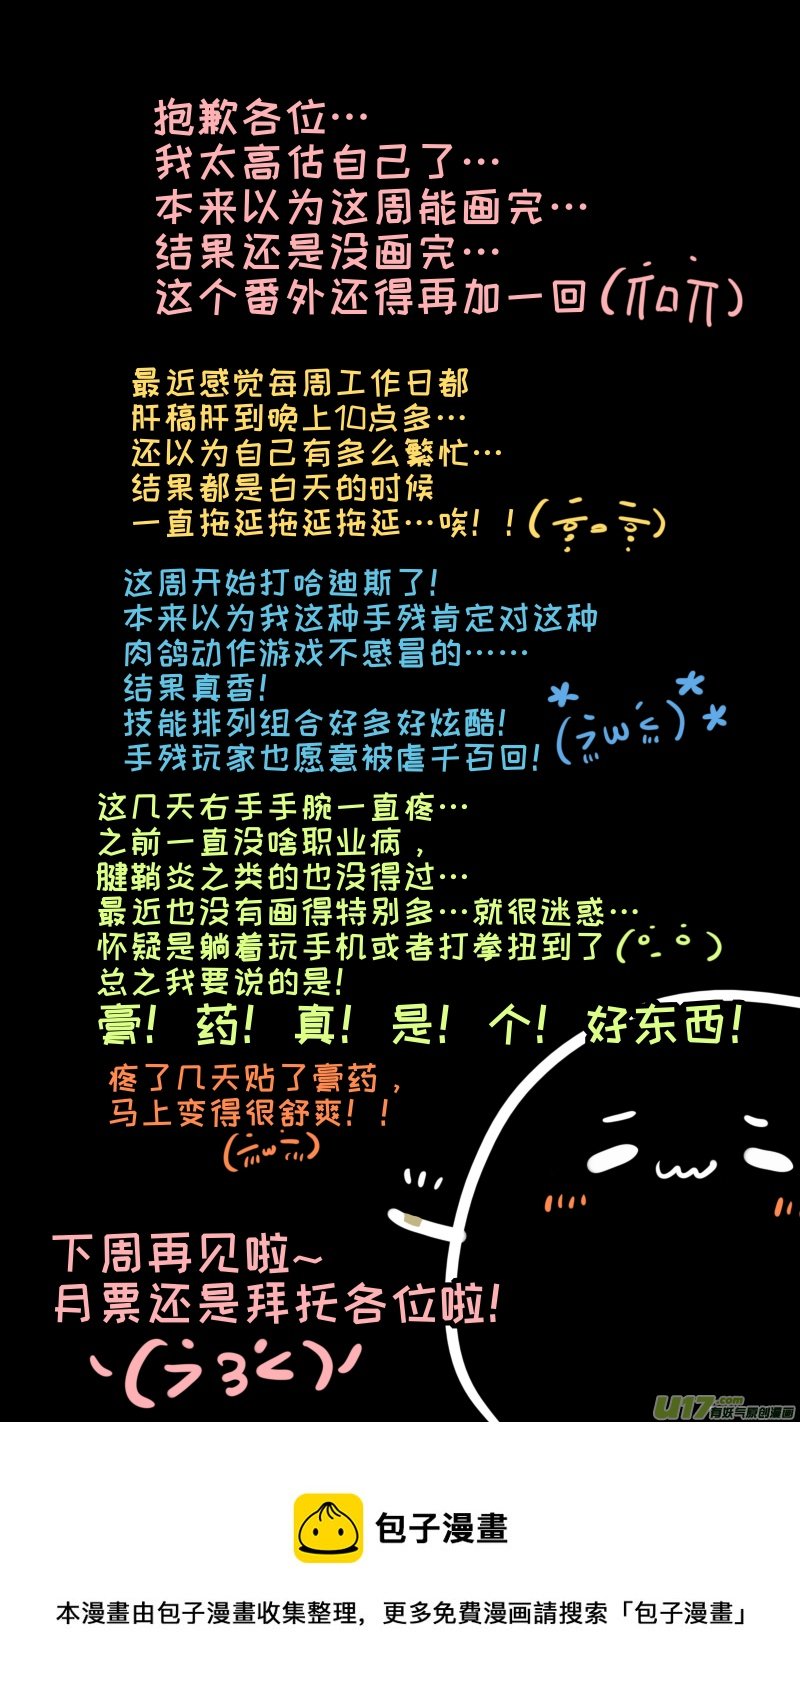 抱歉各位…
我太高估自己了…
本来以为这周能画完…
结果还是没画完…
这个番外还得再加一回
最近感觉每周工作日都
肝稿肝到晚上10点多…
还以为自己有多么繁忙…
结果都是白天的时候
一直拖延拖延拖延…唉！！
这周开始打哈迪斯了！
本来以为我这种手残肯定对这种
肉鸽动作游戏不感冒的……
结果真香！
技能排列组合好多好炫酷！
手残玩家也愿意被虐千百回！
这几天右手手腕一直疼…
之前一直没啥职业病，
腱鞘炎之类的也没得过…
最近也没有画得特别多…就很迷惑…
怀疑是躺着玩手机或者打拳扭到了
总之我要说的是！
膏！药！真！是！个！好东西！
疼了几天贴了膏药，
马上变得很舒爽！！
下周再见啦~
月票还是拜托各位啦！
U17.com
有妖气原创漫画
包子漫畫
本漫畫由包子漫畫收集整理，更多免費漫画請搜索「包子漫畫」